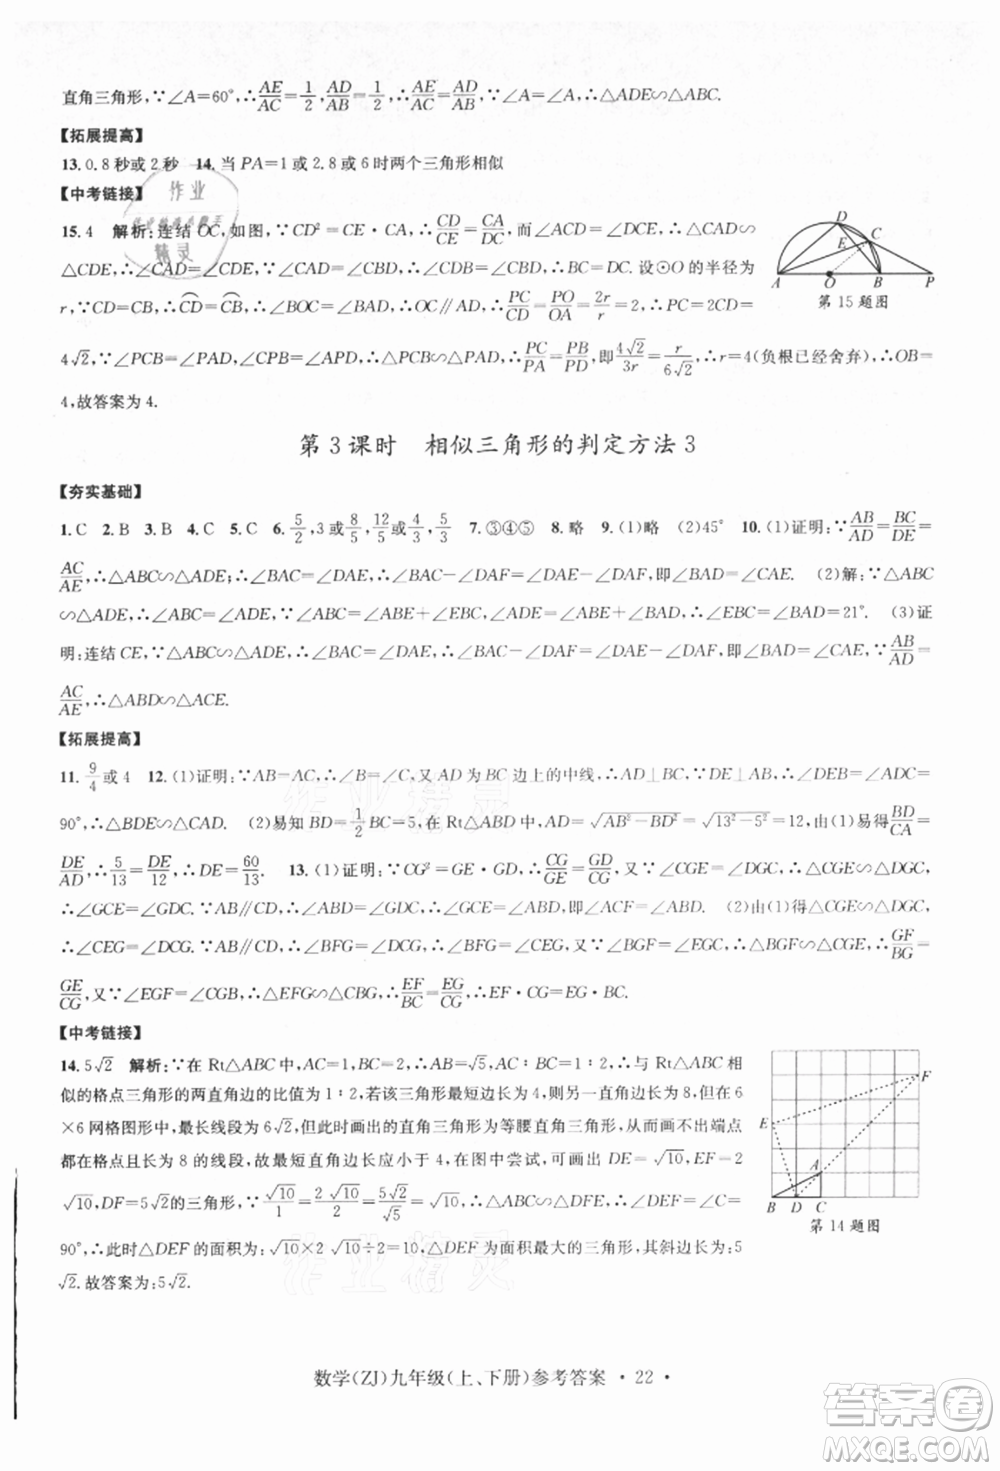 直角三角形,∵∠A=60°,∴AE/AC=1/2,AD/AB=1/2,∴AE/AC=AD/AB,又∵∠A=∠A,∴△ADE∽△ABC.
【拓展提高】
13.0.8秒或2秒 14.当PA=1或2.8或6时两个三角形相似
【中考链接】
15.4 解析:连结OC,如图,∵CD²=CE·CA,∴CD/CE=CA/DC,而∠ACD=∠DCE,∴△CAD∽
△CDE,∴∠CAD=∠CDE,∵∠CAD=∠CBD,∴∠CDB=∠CBD,∴BC=DC.设⊙O的半径为
r,∵CD=CB,∴CD=CB,∴∠BOC=∠BAD,∴OC∥AD,∴PC/CD=PO/OA=2r/r=2,∴PC=2CD=
4√2,∵∠PCB=∠PAD,∠CPB=∠APD,∴△PCB∽△PAD,∴PC/PA=PB/PD,即4√2/3r=r/6√2,∴r=4(负根已经舍弃),∴OB=
4,故答案为4.
A O B P D C E
第15题图
第3课时 相似三角形的判定方法3
【夯实基础】
1.C 2.B 3.B 4.C 5.C 6.5/2,3或8/5,12/5或4/3,5/3 7.③④⑤ 8.略 9.(1)略 (2)45° 10.(1)证明:∵AB/AD=BC/DE=
AC/AE,∴△ABC∽△ADE,∴∠BAC=∠DAE,∴∠BAC-∠DAF=∠DAE-∠DAF,即∠BAD=∠CAE. (2)解:∵△ABC
∽△ADE,∴∠ABC=∠ADE,∵∠ABC=∠ABE+∠EBC,∠ADE=∠ABE+∠BAD,∴∠EBC=∠BAD=21°. (3)证
明:连结CE,∵△ABC∽△ADE,∴∠BAC=∠DAE,∴∠BAC-∠DAE=∠DAE-∠DAE,即∠BAD=∠CAE,∵AB/AD=
AC/AE,∴△ABD∽△ACE.
【拓展提高】
11.9/4或4 12.(1)证明:∵AB=AC,∴∠B=∠C,又∵AD是BC边上的中线,∴AD⊥BC,∵DE⊥AB,∴∠DEB=∠ADC=
90°,∴△BDE∽△CAD. (2)易知BD=1/2BC=5,在Rt△ABD中,AD=√AB²-BD²=√13²-5²=12,由(1)易得BD/CA=
DE/AD,∴5/13=DE/12,∴DE=60/13. 13.(1)证明:∵CG²=GE·GD,∴CG/GE=GD/CG,又∵∠CGE=∠DGC,∴△GCE∽△DGC,
∴∠GCE=∠GDC,∵AB∥CD,∴∠ABF=∠BDC,即∠ACF=∠ABD. (2)由(1)得△GCE∽△DGC,
∴∠CEG=∠DCG,∵AB∥CD,∴∠BFG=∠DCG,∴∠CEG=∠BFG,又∵∠EGC=∠FGB,∴△CEG∽△BFG,∴GF/BG=
GE/CG,又∵∠EGF=∠CGB,∴△EFG∽△CBG,∴EF/BC=EG/CG,∴EF·CG=EG·BC.
【中考链接】
14.5√2 解析:∵在Rt△ABC中,AC=1,BC=2,∴AB=√5,∵与Rt△ABC相
似的格点三角形的两直角边的比值为1:2,若该三角形最短边长为4,则另一直角边长为8,但在6
×6网格图形中,最长线段为6√2,但此时画出的直角三角形为等腰直角三角形,从而画不出端点
都在格点且长为8的线段,故最短直角边长应小于4,在图中尝试,可画出DE=√10,EF=2
√10,DF=5√2的三角形,∵√10/1=√10/2=5√2/√5=√10,∴△ABC∽△DFE,∴∠DEF=∠C=
90°,∴此时△DEF的面积为:√10×2√10÷2=10,△DEF为面积最大的三角形,其斜边长为:5
√2.故答案为:5√2.
F E A B D C
第14题图
数学(ZJ)九年级(上、下册)参考答案 · 22 ·
作业精灵
作业精灵
作业
精灵
答案圈
MXQE.COM